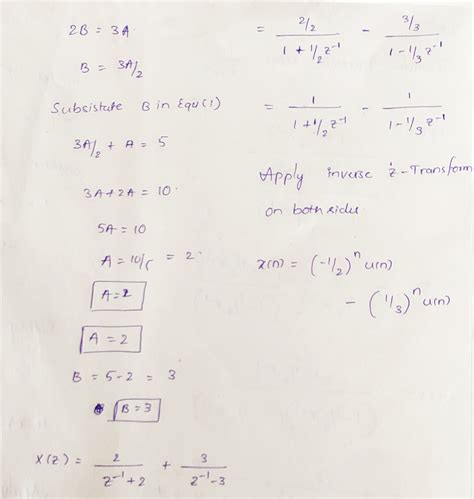 2B = 3A
B = 3A/2
Subsistute B in Equ(1)
3A/2 + A = 5
3A+2A = 10
5A = 10
A = 10/5 = 2
A = 2
A = 2
B = 5-2 = 3
B = 3
X(z) = 2/(z⁻¹+2) + 3/(z⁻¹-3)
= (2/2)/(1 + 1/2 z⁻¹) - (3/3)/(1 - 1/3 z⁻¹)
= 1/(1 + 1/2 z⁻¹) - 1/(1 - 1/3 z⁻¹)
Apply inverse z-Transform
on both sides
x(n) = (-1/2)ⁿ u(n)
- (1/3)ⁿ u(n)